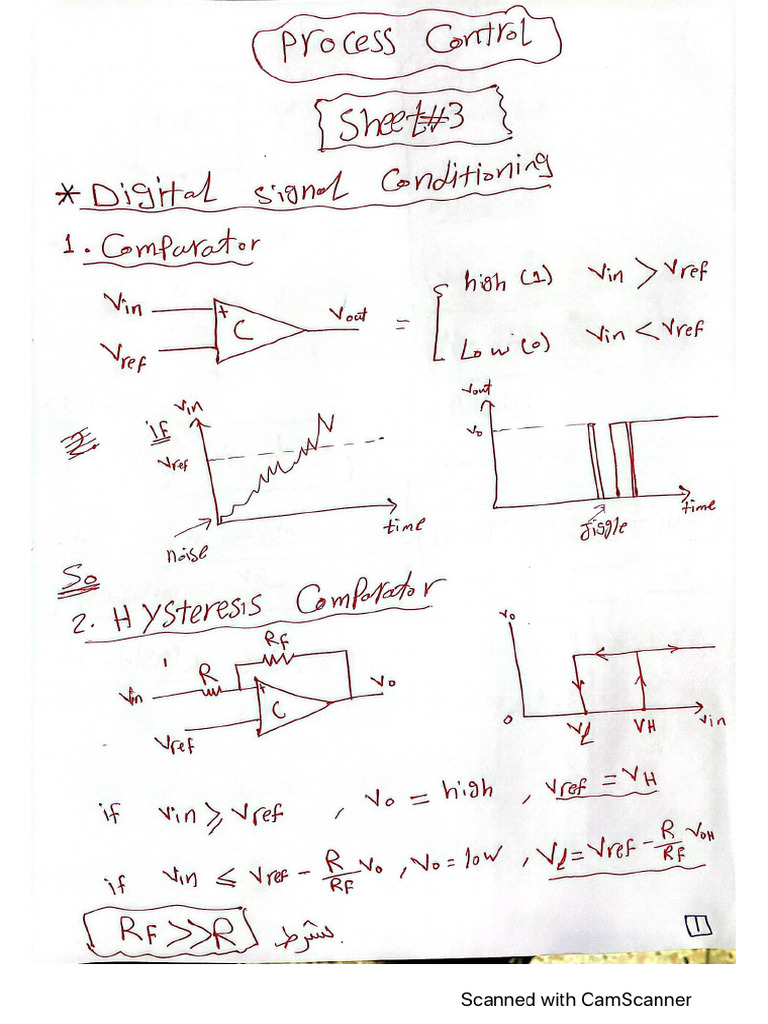 Process Control
Sheet#3
* Digital signal Conditioning
1. Comparator
Vin
Vref
+
C
Vout
=
high (1) Vin > Vref
Low (0) Vin < Vref
if
Vin
Vref
time
noise
Vout
Vo
time
Jiggle
So
2. Hysteresis Comparator
Vin
R
RF
+
C
Vo
Vref
Vo
0
VL
VH
Vin
if Vin ⩾ Vref , Vo = high , Vref = VH
if Vin ⩽ Vref - R/RF Vo , Vo = low , VL = Vref - R/RF VoH
RF >> R شرط.
1
Scanned with CamScanner